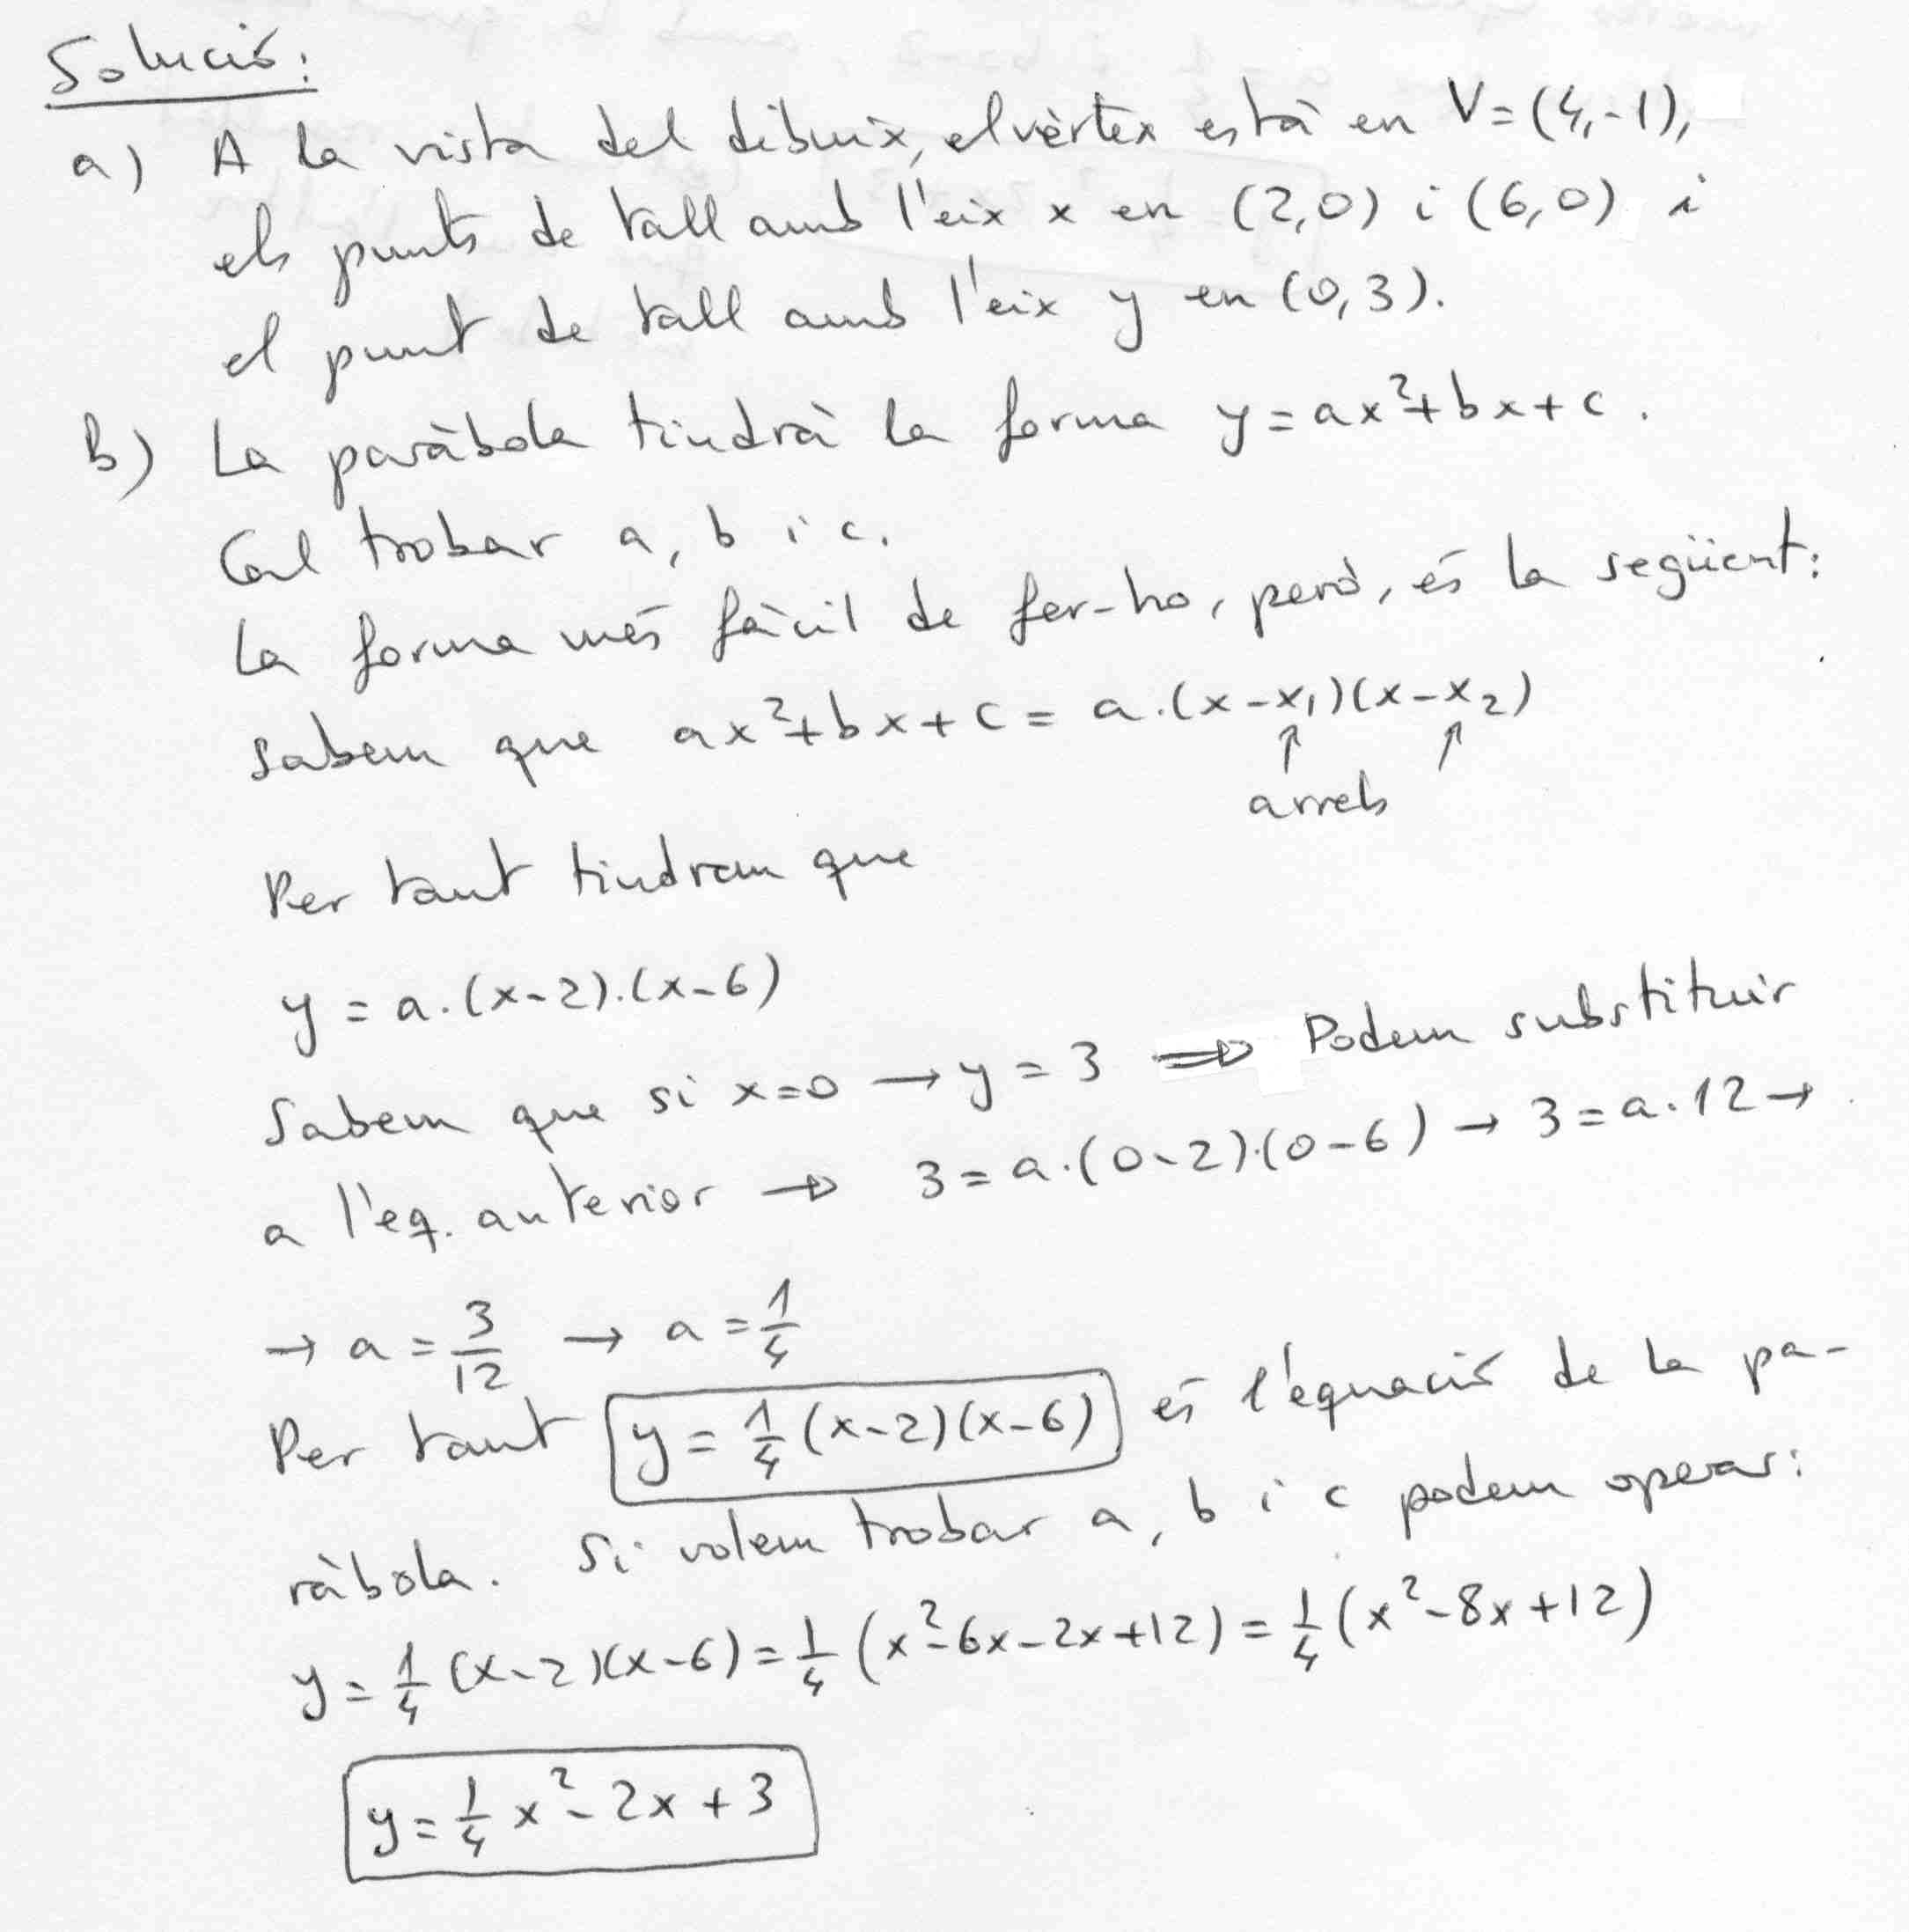 Solució:
a) A la vista del dibuix, el vèrtex està en V=(4,-1),
els punts de tall amb l'eix x en (2,0) i (6,0) i
el punt de tall amb l'eix y en (0,3).
b) La paràbola tindrà la forma y=ax²+bx+c.
Cal trobar a, b i c.
La forma més fàcil de fer-ho, però, és la següent:
Sabem que ax²+bx+c = a·(x-x₁)(x-x₂)
↑ ↑
arrels
Per tant tindrem que
y = a·(x-2)·(x-6)
Sabem que si x=0 → y = 3 ⇒ Podem substituir
a l'eq. anterior → 3 = a·(0-2)·(0-6) → 3 = a·12 →
→ a = 3/12 → a = 1/4
Per tant y = 1/4 (x-2)(x-6) és l'equació de la pa-
ràbola. Si volem trobar a, b i c podem operar:
y = 1/4 (x-2)(x-6) = 1/4 (x²-6x-2x+12) = 1/4 (x²-8x+12)
y = 1/4 x² - 2x + 3